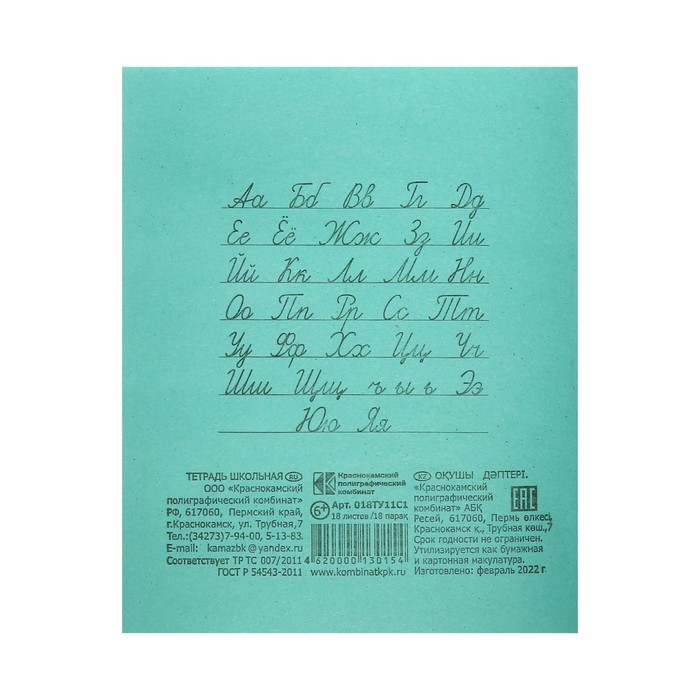 Аа Бб Вв Гг Дд
Ее Ёё Жж Зз Ии
Йй Кк Лл Мм Нн
Оо Пп Рр Сс Тт
Уу Фф Хх Цц Чч
Шш Щщ ъ ы ь Ээ
Юю Яя
ТЕТРАДЬ ШКОЛЬНАЯ RU
ООО «Краснокамский
полиграфический комбинат»
РФ, 617060, Пермский край,
г.Краснокамск, ул. Трубная,7
Тел.:(34273)7-94-00, 5-13-83.
E-mail: kamazbk@yandex.ru
Соответствует ТР ТС 007/2011
ГОСТ Р 54543-2011
Краснокамский
полиграфический
комбинат
6+ Арт. 018ТУ11С1
18 листов /18 парақ
4 620000 130154
www.kombinatkpk.ru
KZ ОҚУШЫ ДӘПТЕРІ.
«Краснокамский
полиграфический
комбинат» АБҚ
Ресей, 617060, Пермь өлкесі,
Краснокамск қ., Трубная көш.,7
Срок годности не ограничен.
Утилизируется как бумажная
и картонная макулатура.
Изготовлено: февраль 2022 г.
EAC